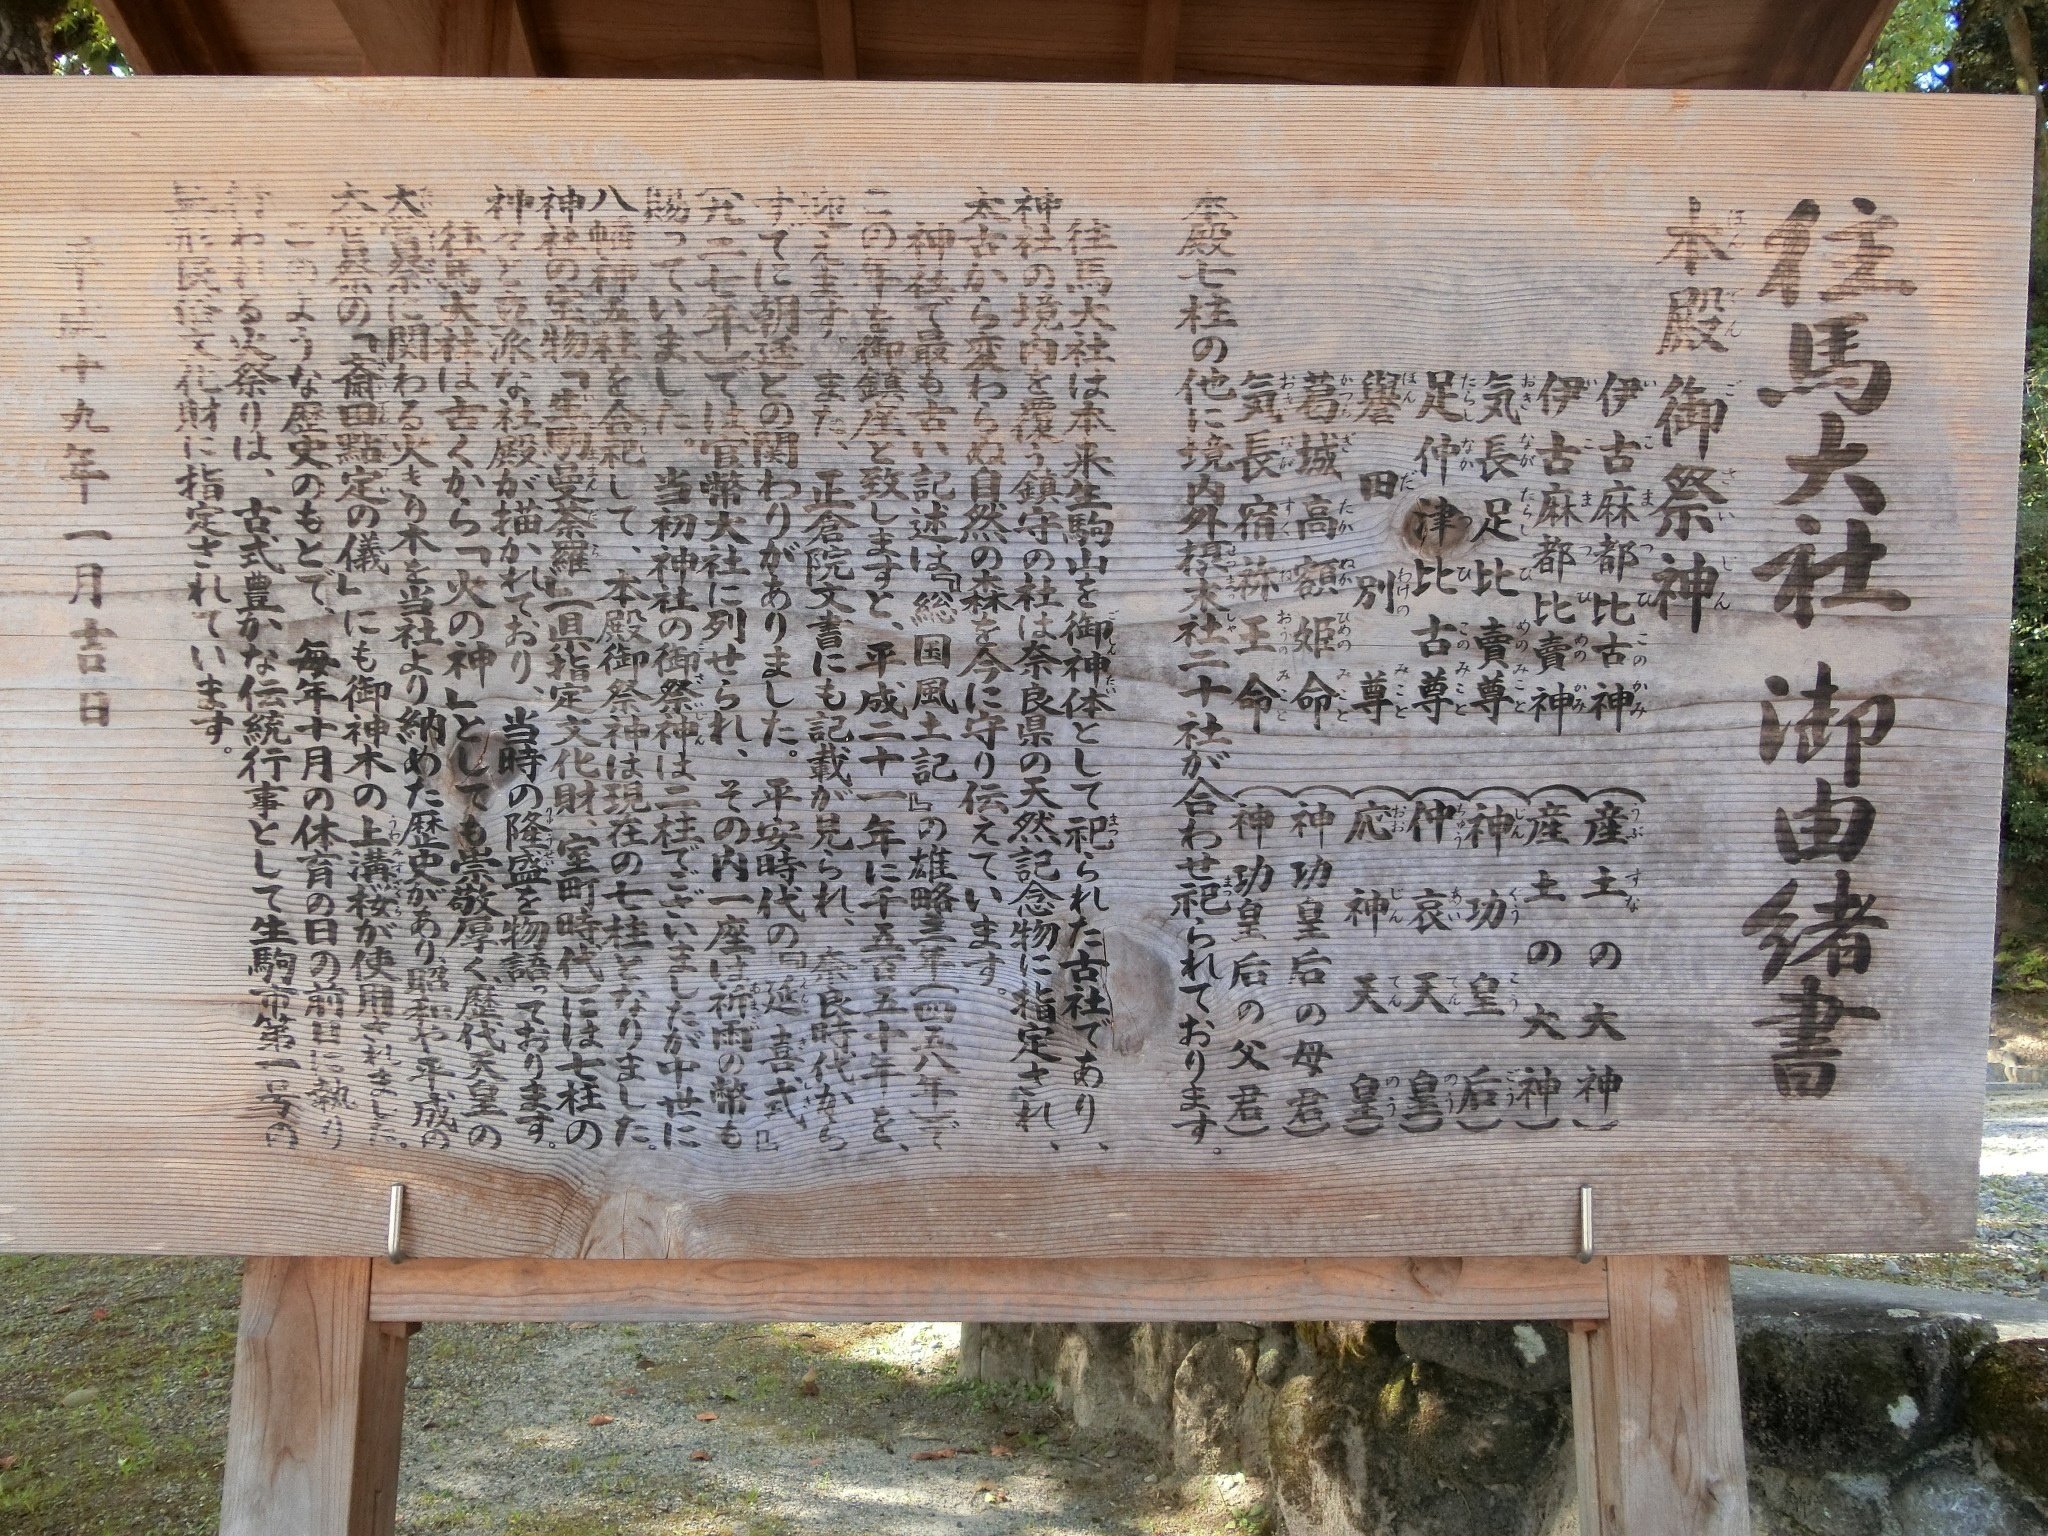 往馬大社 御由緒書
本殿 御祭神
伊古麻都比古神 (産土の大神)
伊古麻都比賣神 (産土の大神)
気長足比賣尊 (神功皇后)
足仲津比古尊 (仲哀天皇)
譽田別尊 (応神天皇)
葛城高額姫命 (神功皇后の母君)
気長宿祢王命 (神功皇后の父君)
本殿七柱の他に境内外摂末社二十社が合わせ祀られております。
往馬大社は本来生駒山を御神体として祀られた古社であり、
神社の境内を覆う鎮守の社は奈良県の天然記念物に指定され、
太古から変わらぬ自然の森を今に守り伝えています。
神社で最も古い記述は『総国風土記』の雄略三年(四五八年)で
この年を御鎮座と致しますと、平成二十一年に千五百五十年を、
迎えます。また、正倉院文書にも記載が見られ、奈良時代から
すでに朝廷との関わりがありました。平安時代の『延喜式』
(九二七年)では官幣大社に列せられ、その内一座は祈雨の幣も
賜っていました。当初神社の御祭神は二柱でございましたが中世に
八幡神五柱を合祀して、本殿御祭神は現在の七柱となりました。
神社の宝物「生駒曼荼羅」(県指定文化財、室町時代)には七柱の
神々と立派な社殿が描かれており、当時の隆盛を物語っております。
往馬大社は古くから「火の神」としても崇敬厚く歴代天皇の
大嘗祭に関わる火きり木を当社より納めた歴史があり、昭和や平成の
大嘗祭の「斎田點定の儀」にも御神木の上溝桜が使用されました。
このような歴史のもとで、毎年十月の体育の日の前日に執り
行われる火祭りは、古式豊かな伝統行事として生駒市第一号の
無形民俗文化財に指定されています。
平成十九年一月吉日